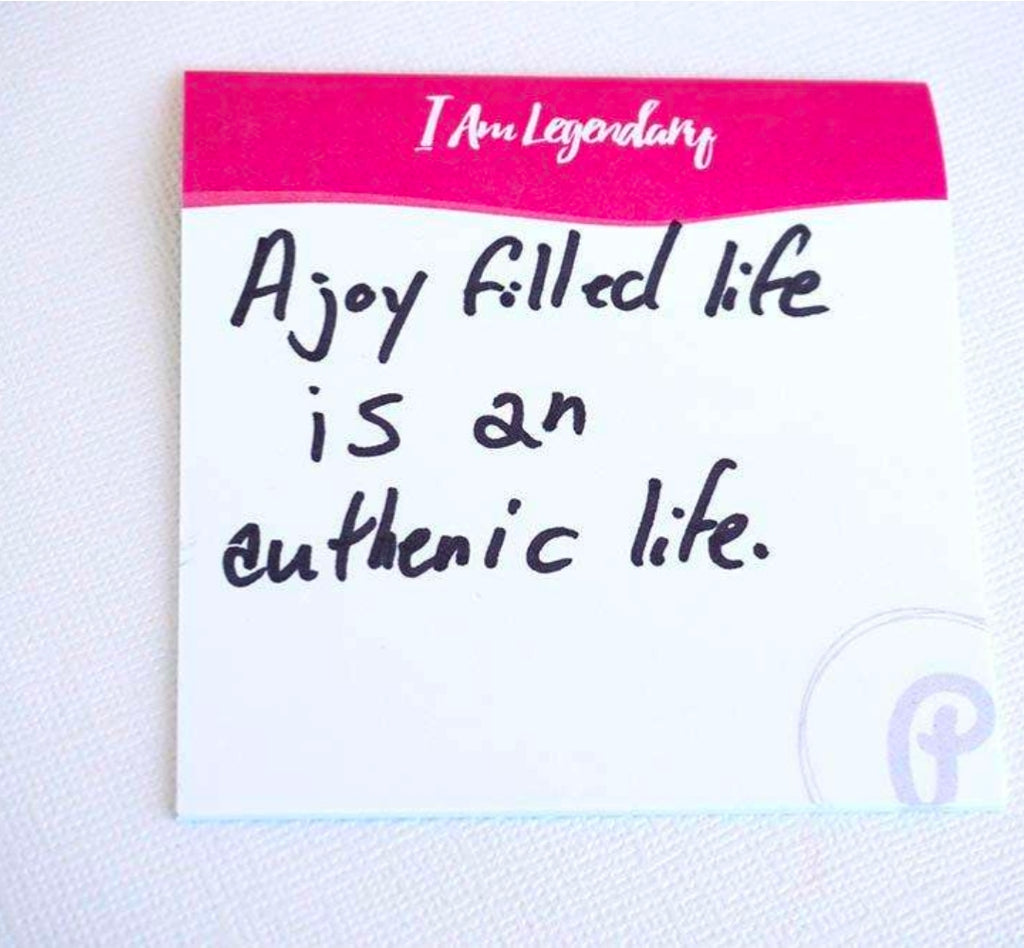 I Am Legendary
A joy filled life
is an
authenic life.